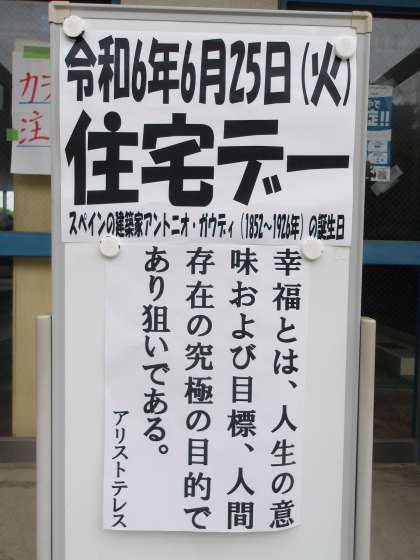 令和6年6月25日(火)
住宅デー
スペインの建築家アントニオ・ガウディ(1852～1926年)の誕生日
幸福とは、人生の意
味および目標、人間
存在の究極の目的で
あり狙いである。
アリストテレス
カラ
注